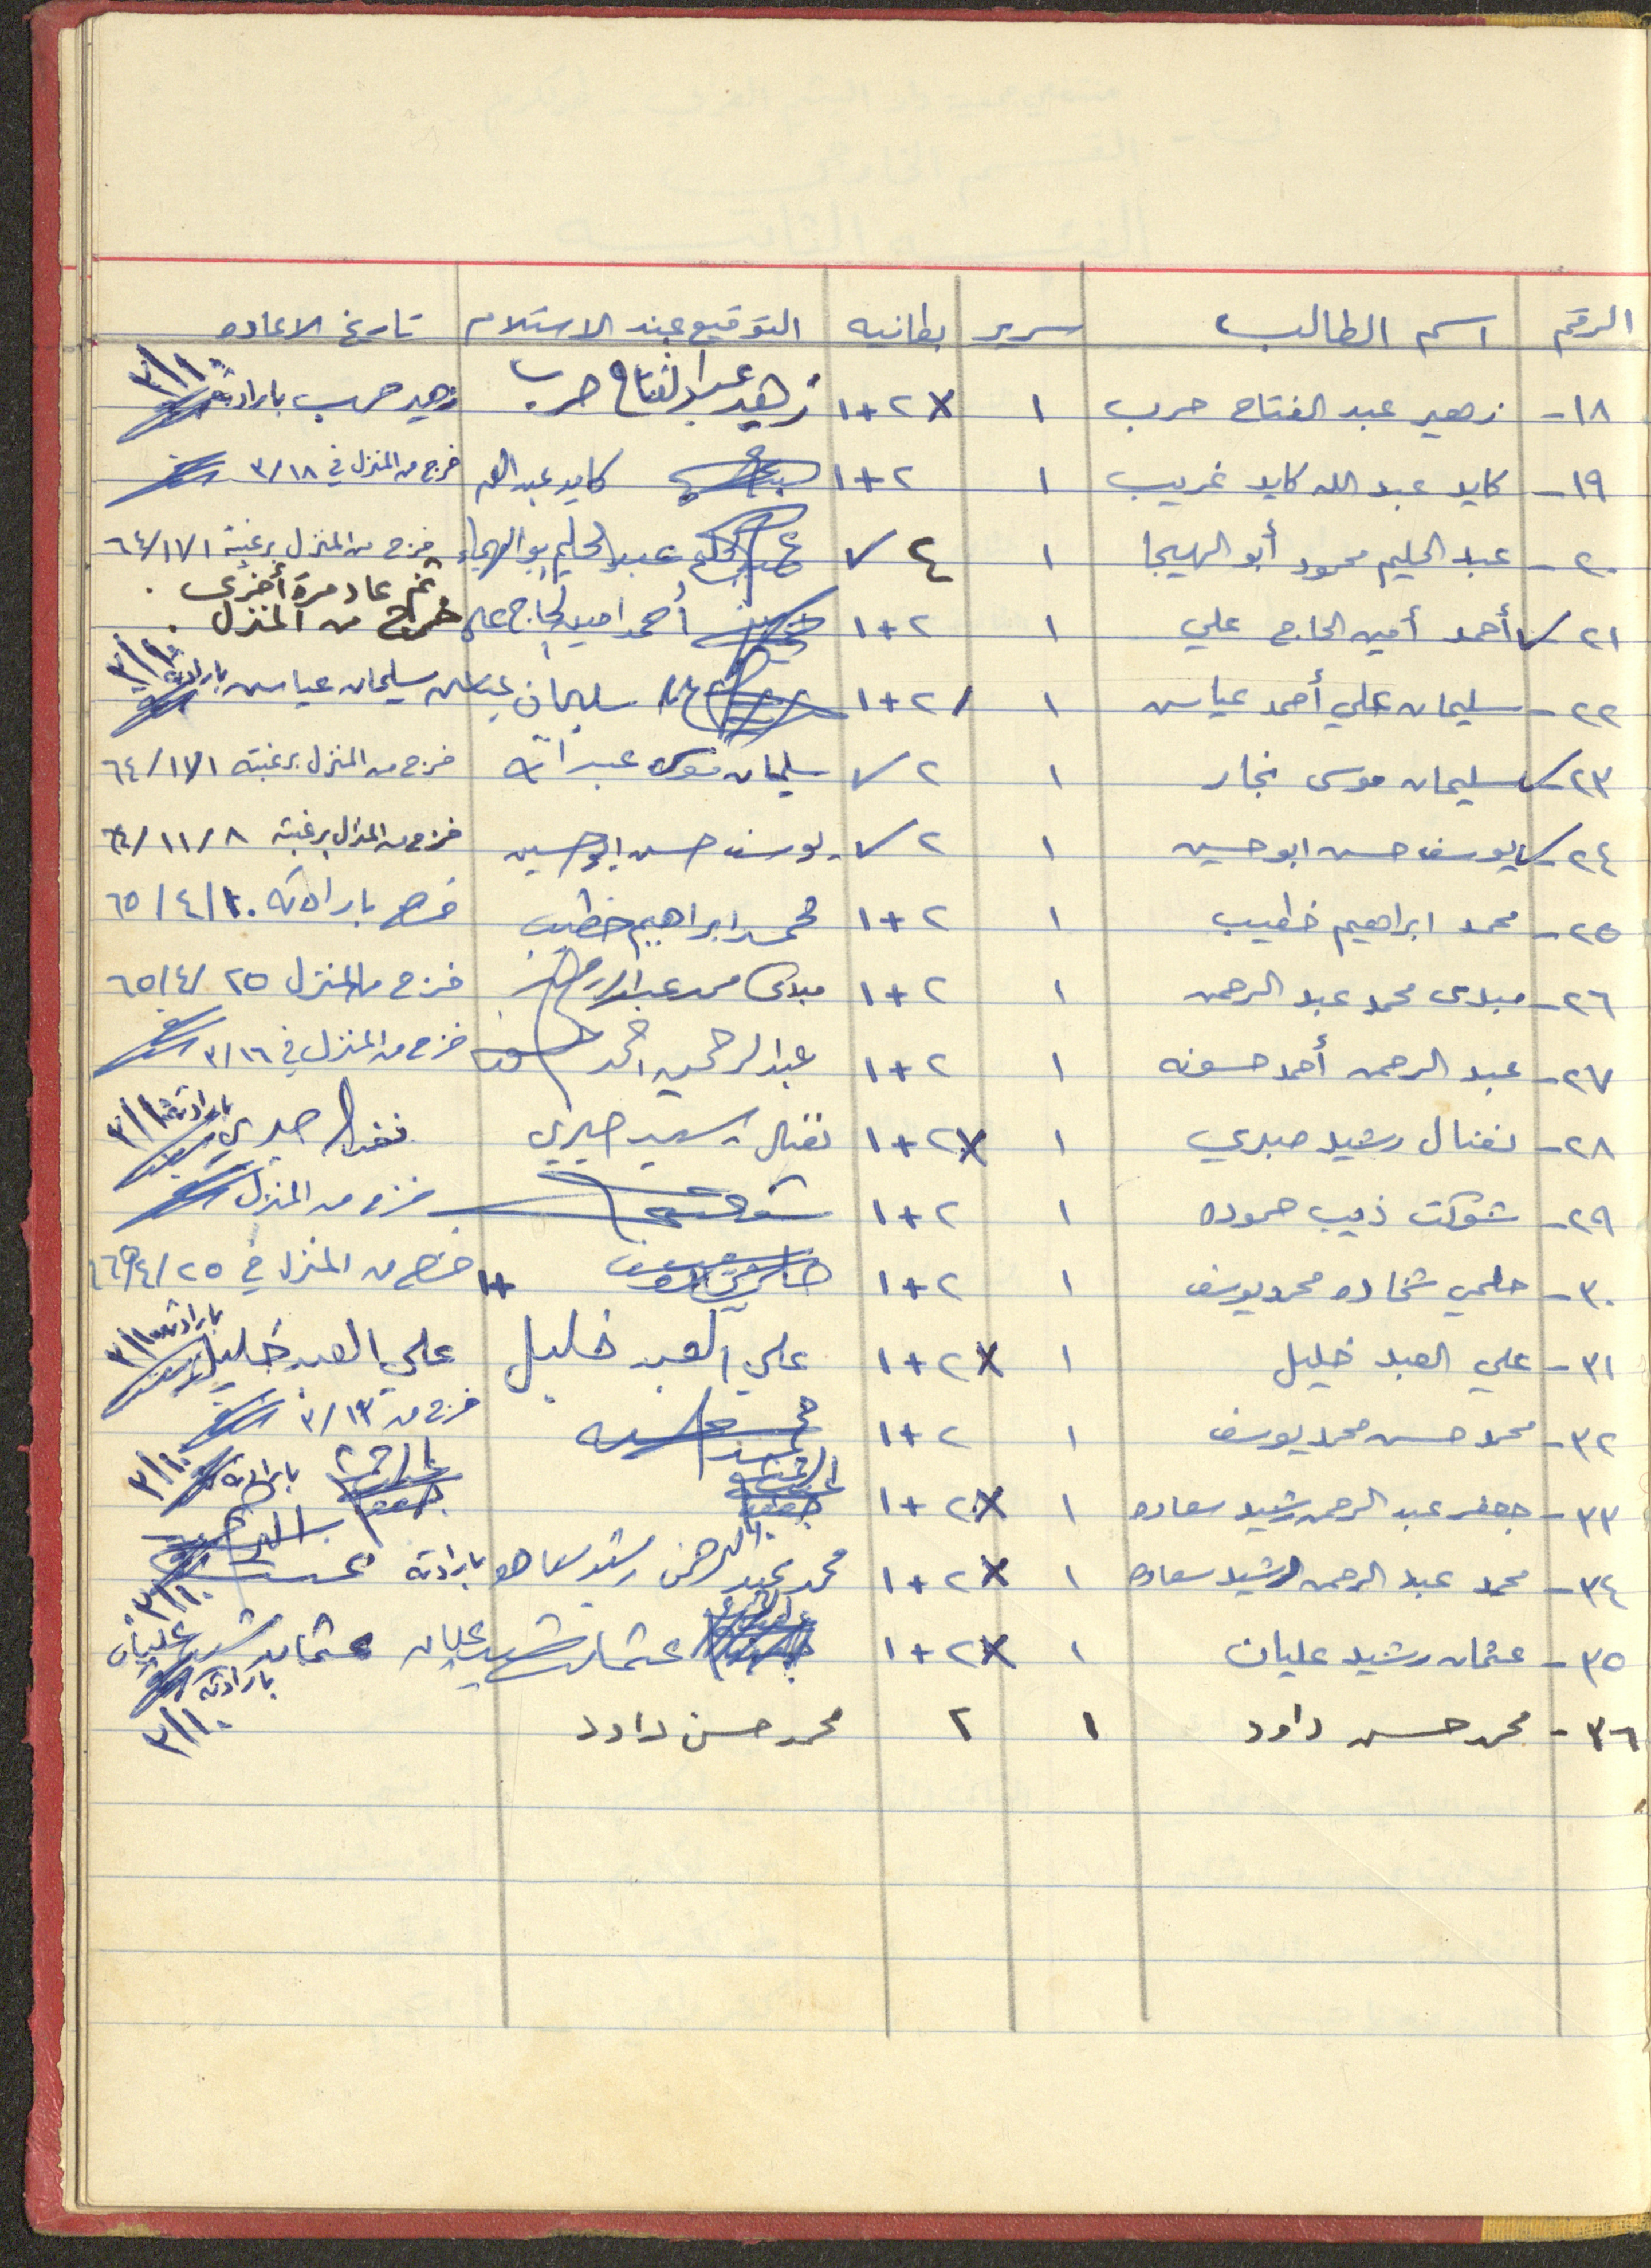 الرقم اسم الطالب سرير بطانيه التوقيع عند الاستلام تاريخ الاعاده
١٨- زهير عبد الفتاح حرب ١ ٢+١ زهير عبد الفتاح حرب زهير حرب بارادته ٣/١٠
١٩- كايد عبد الله كايد غريب ١ ٢+١ كايد عبد الله خرج من المنزل في ٣/١٨
٢٠- عبد الحليم محمود أبو الهيجا ١ ٤ ✓ عبد الحليم ابو الهيجاء خرج من المنزل برغبته ٦٤/١١/١
ثم عاد مرة أخرى.
٢١- ✓ أحمد أمين الحاج علي ١ ٢+١ أحمد امين الحاج علي خرج من المنزل.
٢٢- سليمان علي أحمد عباس ١ ٢+١ سليمان عباس سليمان عباس بارادته ٣/١٠
٢٣- ✓ سليمان موسى نجار ١ ٢ ✓ سليمان موسى عبد الله خرج من المنزل برغبته ٦٤/١١/١
٢٤- ✓ يوسف حسن ابو حسين ١ ٢ ✓ يوسف حسن ابو حسين خرج من المنزل برغبته ٦٤/١١/٨
٢٥- محمد ابراهيم خطيب ١ ٢+١ محمد ابراهيم خطيب خرج بارادته ٦٥/٤/١٠
٢٦- مبدى محمد عبد الرحمن ١ ٢+١ مبدى محمد عبد الرحمن خرج من المنزل ٦٥/٤/٢٥
٢٧- عبد الرحمن أحمد حسونه ١ ٢+١ عبد الرحمن احمد حسونه خرج من المنزل في ٣/١٦
٢٨- نضال رشيد صبري ١ ٢+١ نضال رشيد صبري نضال صبري بارادته ٣/١٠
٢٩- شوكت ذيب حموده ١ ٢+١ خرج من المنزل
٣٠- حلمي شحاده محمد يوسف ١ ٢+١ +١ خرج من المنزل في ٦٥/٤/٢٥
٣١- علي العبد خليل ١ ٢+١ علي العبد خليل علي العبد خليل بارادته ٣/١٠
٣٢- محمد حسن محمد يوسف ١ ٢+١ محمد حسن خرج من ٣/١٣
٣٣- جعفر عبد الرحمن رشيد سعاده ١ ٢+١ جعفر بارادته ٣/١٠
٣٤- محمد عبد الرحمن رشيد سعاده ١ ٢+١ محمد عبد الرحمن رشيد سعاده بارادته ٣/١٠
٣٥- عثمان رشيد عليان ١ ٢+١ عثمان رشيد عليان عثمان رشيد عليان بارادته ٣/١٠
٣٦- محمد حسن داود ١ ٢ محمد حسن داود